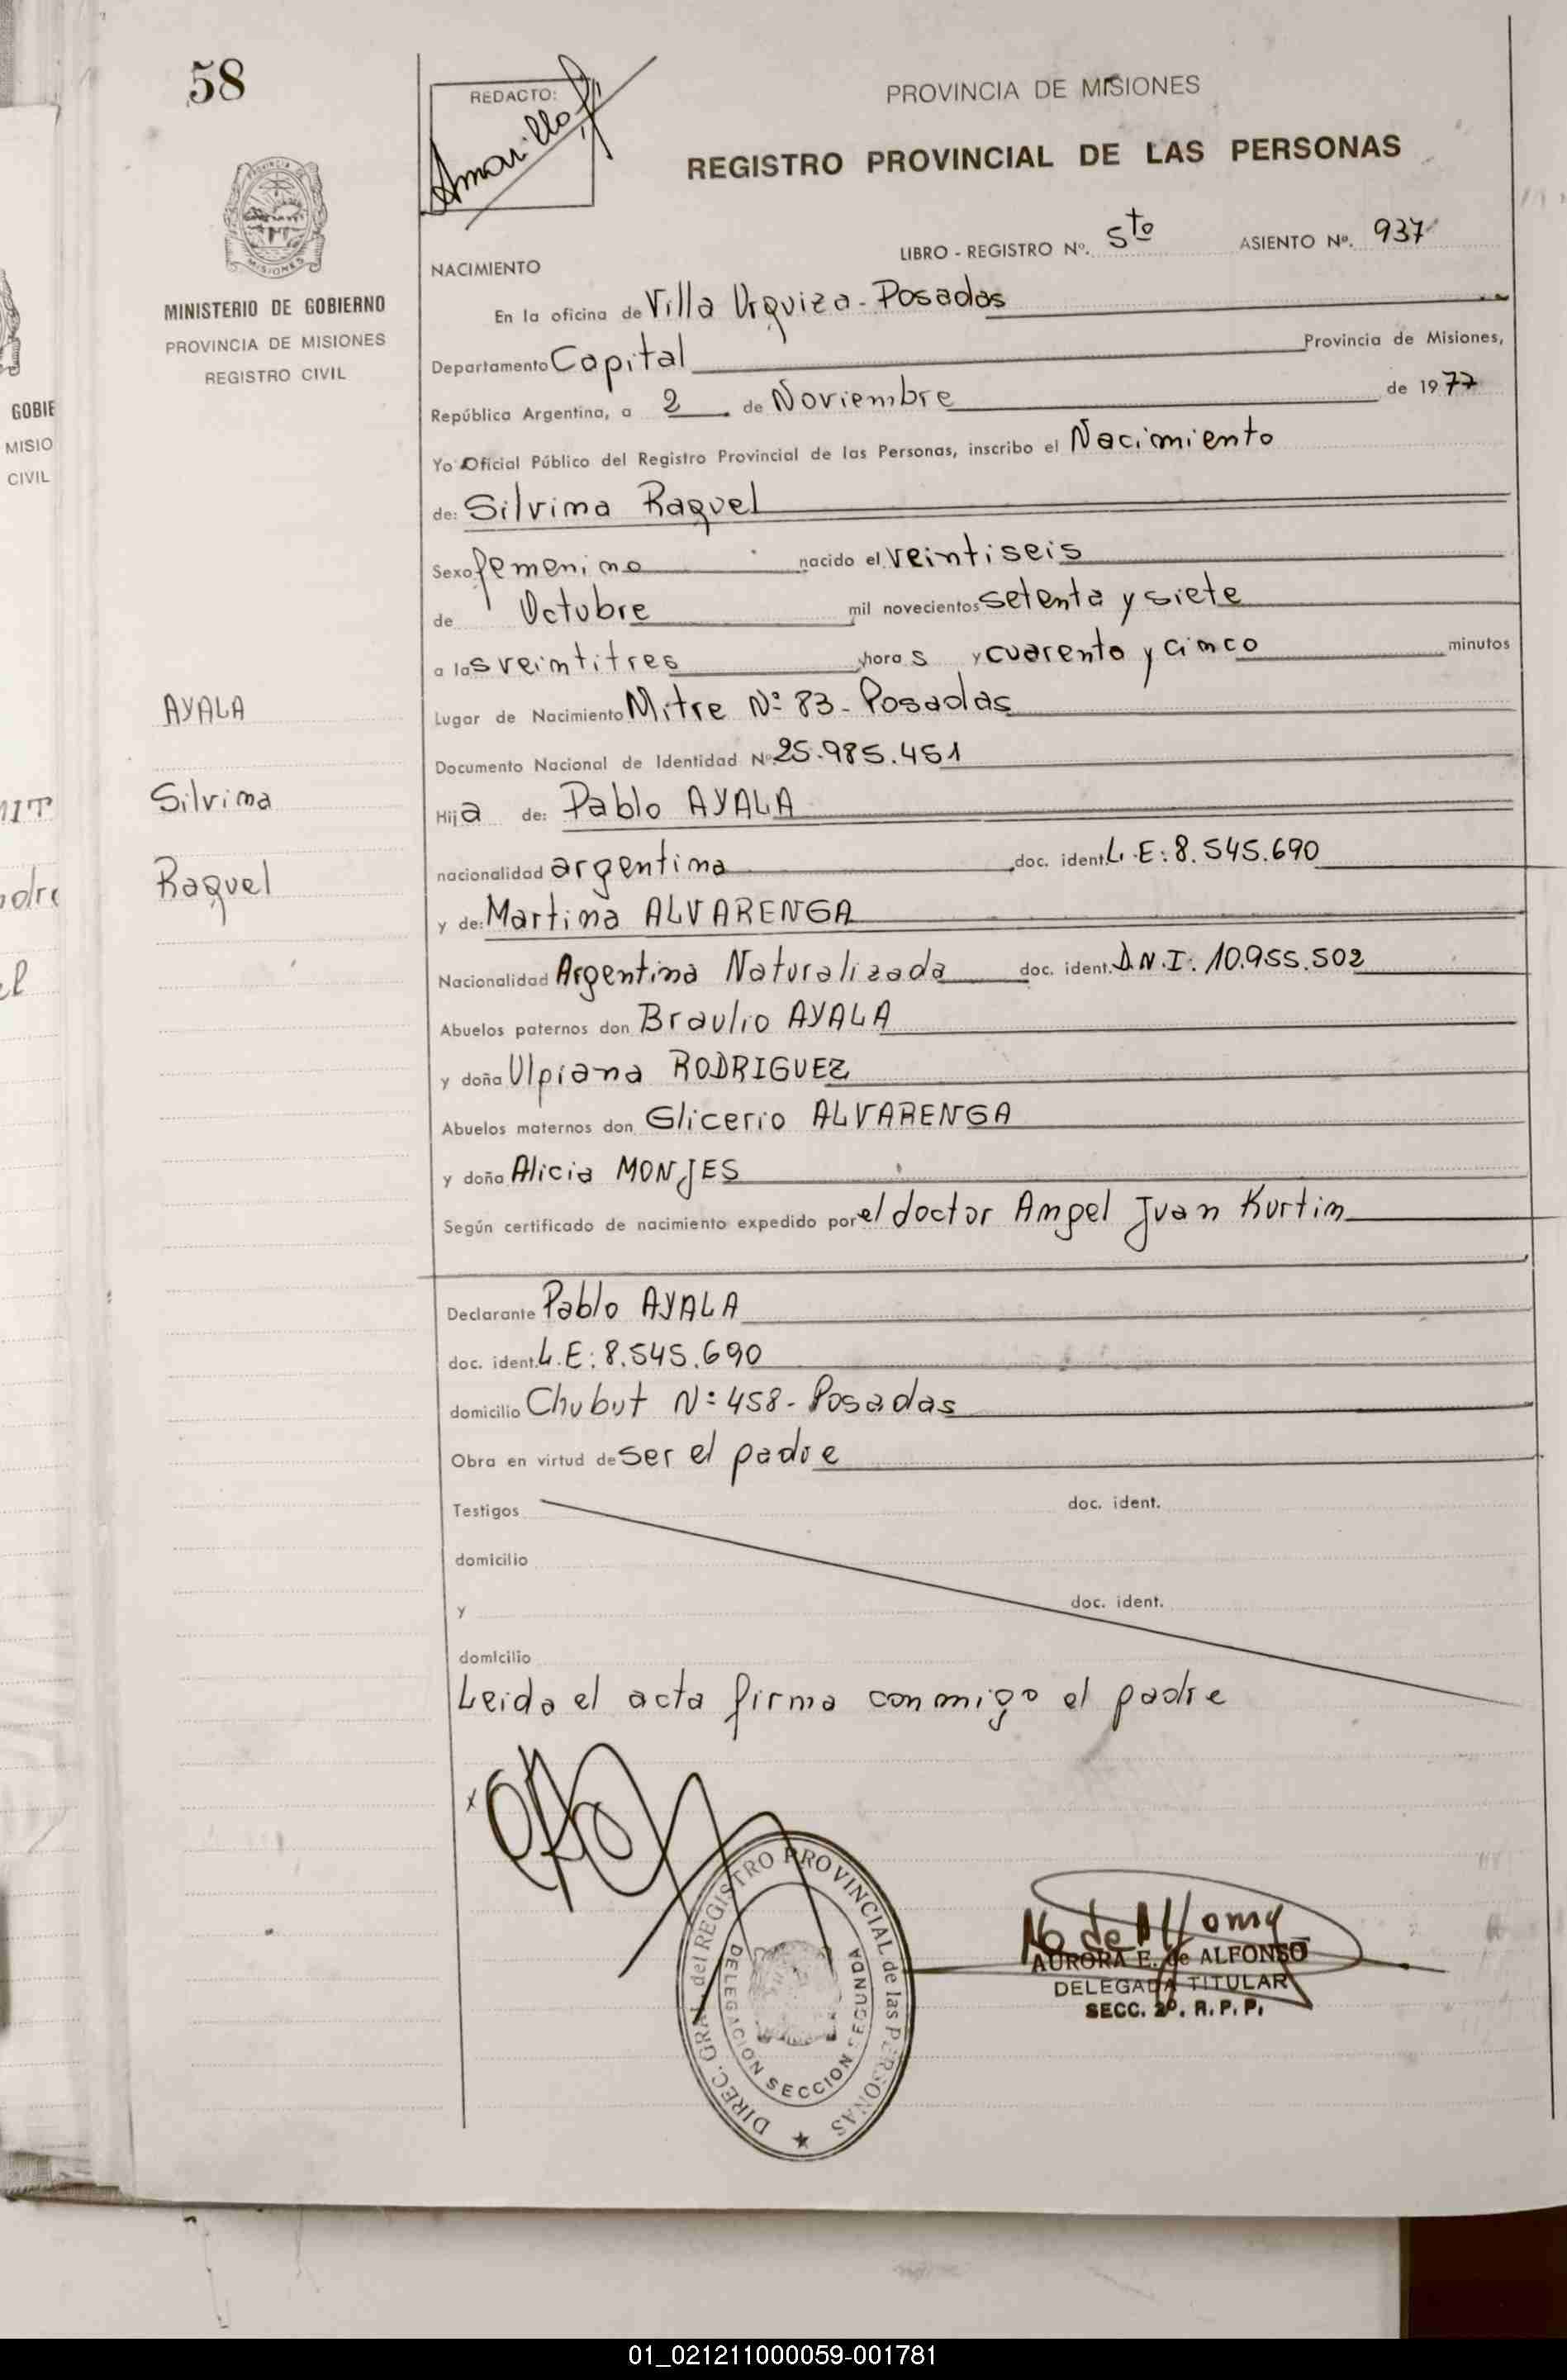 58
REDACTO:
Amarilla
PROVINCIA DE MISIONES
REGISTRO PROVINCIAL DE LAS PERSONAS
LIBRO - REGISTRO Nº. 5to ASIENTO Nº. 937
NACIMIENTO
MISIONES
MINISTERIO DE GOBIERNO
PROVINCIA DE MISIONES
REGISTRO CIVIL
En la oficina de Villa Urquiza - Posadas
Departamento Capital Provincia de Misiones,
República Argentina, a 2 de Noviembre de 1977
Yo Oficial Público del Registro Provincial de las Personas, inscribo el Nacimiento
de: Silvina Raquel
Sexo femenino nacido el veintiseis
de Octubre mil novecientos setenta y siete
a las veintitres horas y cuarenta y cinco minutos
AYALA
Silvina
Raquel
Lugar de Nacimiento Mitre Nº 83 - Posadas
Documento Nacional de Identidad Nº 25.985.451
Hija de: Pablo AYALA
nacionalidad argentina doc. ident. L.E: 8.545.690
y de: Martina ALVARENGA
Nacionalidad Argentina Naturalizada doc. ident. D.N.I: 10.955.502
Abuelos paternos don Braulio AYALA
y doña Ulpiana RODRIGUEZ
Abuelos maternos don Glicerio ALVARENGA
y doña Alicia MONJES
Según certificado de nacimiento expedido por el doctor Angel Juan Kurtin
Declarante Pablo AYALA
doc. ident. L.E: 8.545.690
domicilio Chubut Nº 458 - Posadas
Obra en virtud de ser el padre
Testigos doc. ident.
domicilio
y doc. ident.
domicilio
Leida el acta firma conmigo el padre
x
DIREC. GRAL. del REGISTRO PROVINCIAL de las PERSONAS
DELEGACION SECCION SEGUNDA
AURORA E. de ALFONSO
DELEGADA TITULAR
SECC. 2º. R. P. P.
GOBIE
MISIO
CIVIL
01_021211000059-001781